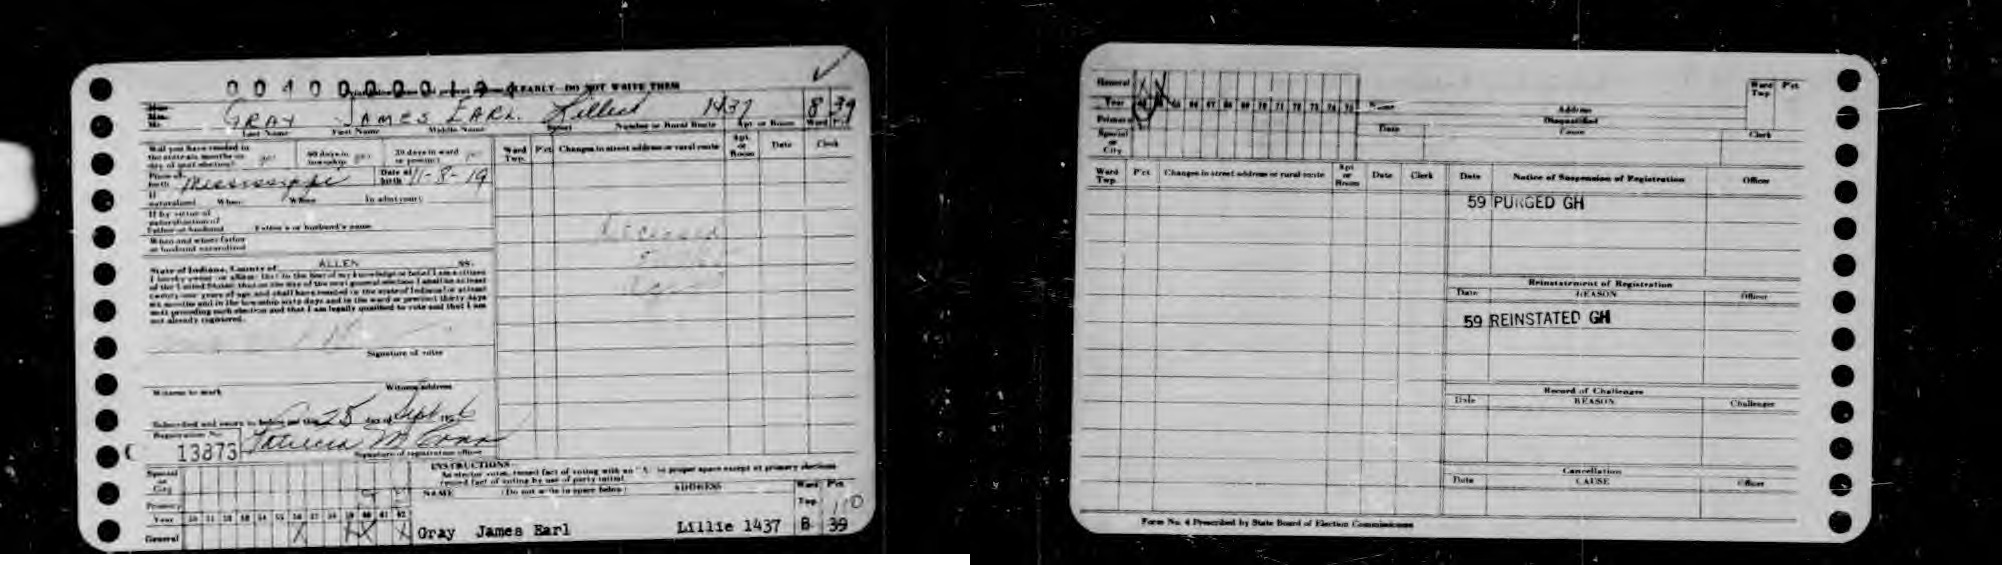 CLEARLY DO NOT WRITE THEM
GRAY JAMES EARL Lillie 1437 8 39
Last Name First Name Middle Name Street Number or Rural Route Apt or Room Ward Pct
Will you have resided in
the state six months on
day of next election? yes 60 days in township yes 30 days in ward or precinct yes
Place of birth Mississippi Date of birth 11-8-19
If naturalized When Where In what court
If by virtue of
naturalization of
Father or husband Father's or husband's name
When and where father
or husband naturalized
Ward Twp. Pct Changes in street address or rural route Apt. or Room Date Clerk
State of Indiana, County of ALLEN SS.
I hereby swear or affirm that to the best of my knowledge or belief I am a citizen
of the United States; that on the day of the next general election I shall be at least
twenty-one years of age and shall have resided in the state of Indiana for at least
six months and in the township sixty days and in the ward or precinct thirty days
next preceding such election and that I am legally qualified to vote and that I am
not already registered.
Signature of voter
Witness to mark Witness address
Subscribed and sworn to before me this 25 day of Sept
Registration No.
13873 Patricia M
Signature of registration officer
INSTRUCTIONS
An elector votes, record fact of voting with an "X" in proper space except at primary elections
record fact of voting by use of party initial.
Special or City
NAME (Do not write in space below) ADDRESS Ward Pct.
Primary Twp. 110
Year 50 51 52 53 54 55 56 57 58 59 60 61 62
General X X X X Gray James Earl Lillie 1437 8 39
General
Year 65 66 67 68 69 70 71 72 73 74 75 Name Address Ward Twp. Pct
Primary Disqualified
Special or City Date Cause Clerk
Ward Twp. Pct Changes in street address or rural route Apt or Room Date Clerk Date Notice of Suspension of Registration Officer
59 PURGED GH
Reinstatement of Registration
Date REASON Officer
59 REINSTATED GH
Record of Challenges
Date REASON Challenger
Cancellation
Date CAUSE Officer
Form No. 4 Prescribed by State Board of Election Commissioners